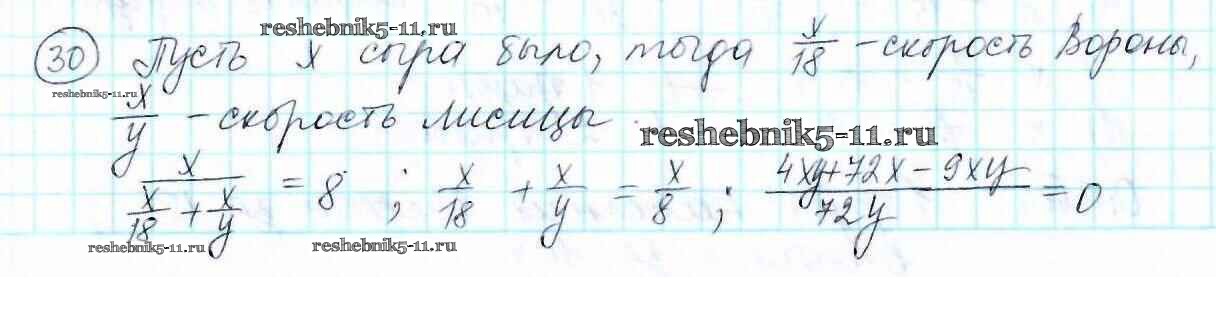 reshebnik5-11.ru
30 Пусть x сыра было, тогда x/18 - скорость Вороны,
reshebnik5-11.ru
x/y - скорость лисицы
reshebnik5-11.ru
x/(x/18 + x/y) = 8 ; x/18 + x/y = x/8 ; (4xy+72x-9xy)/72y = 0
reshebnik5-11.ru reshebnik5-11.ru